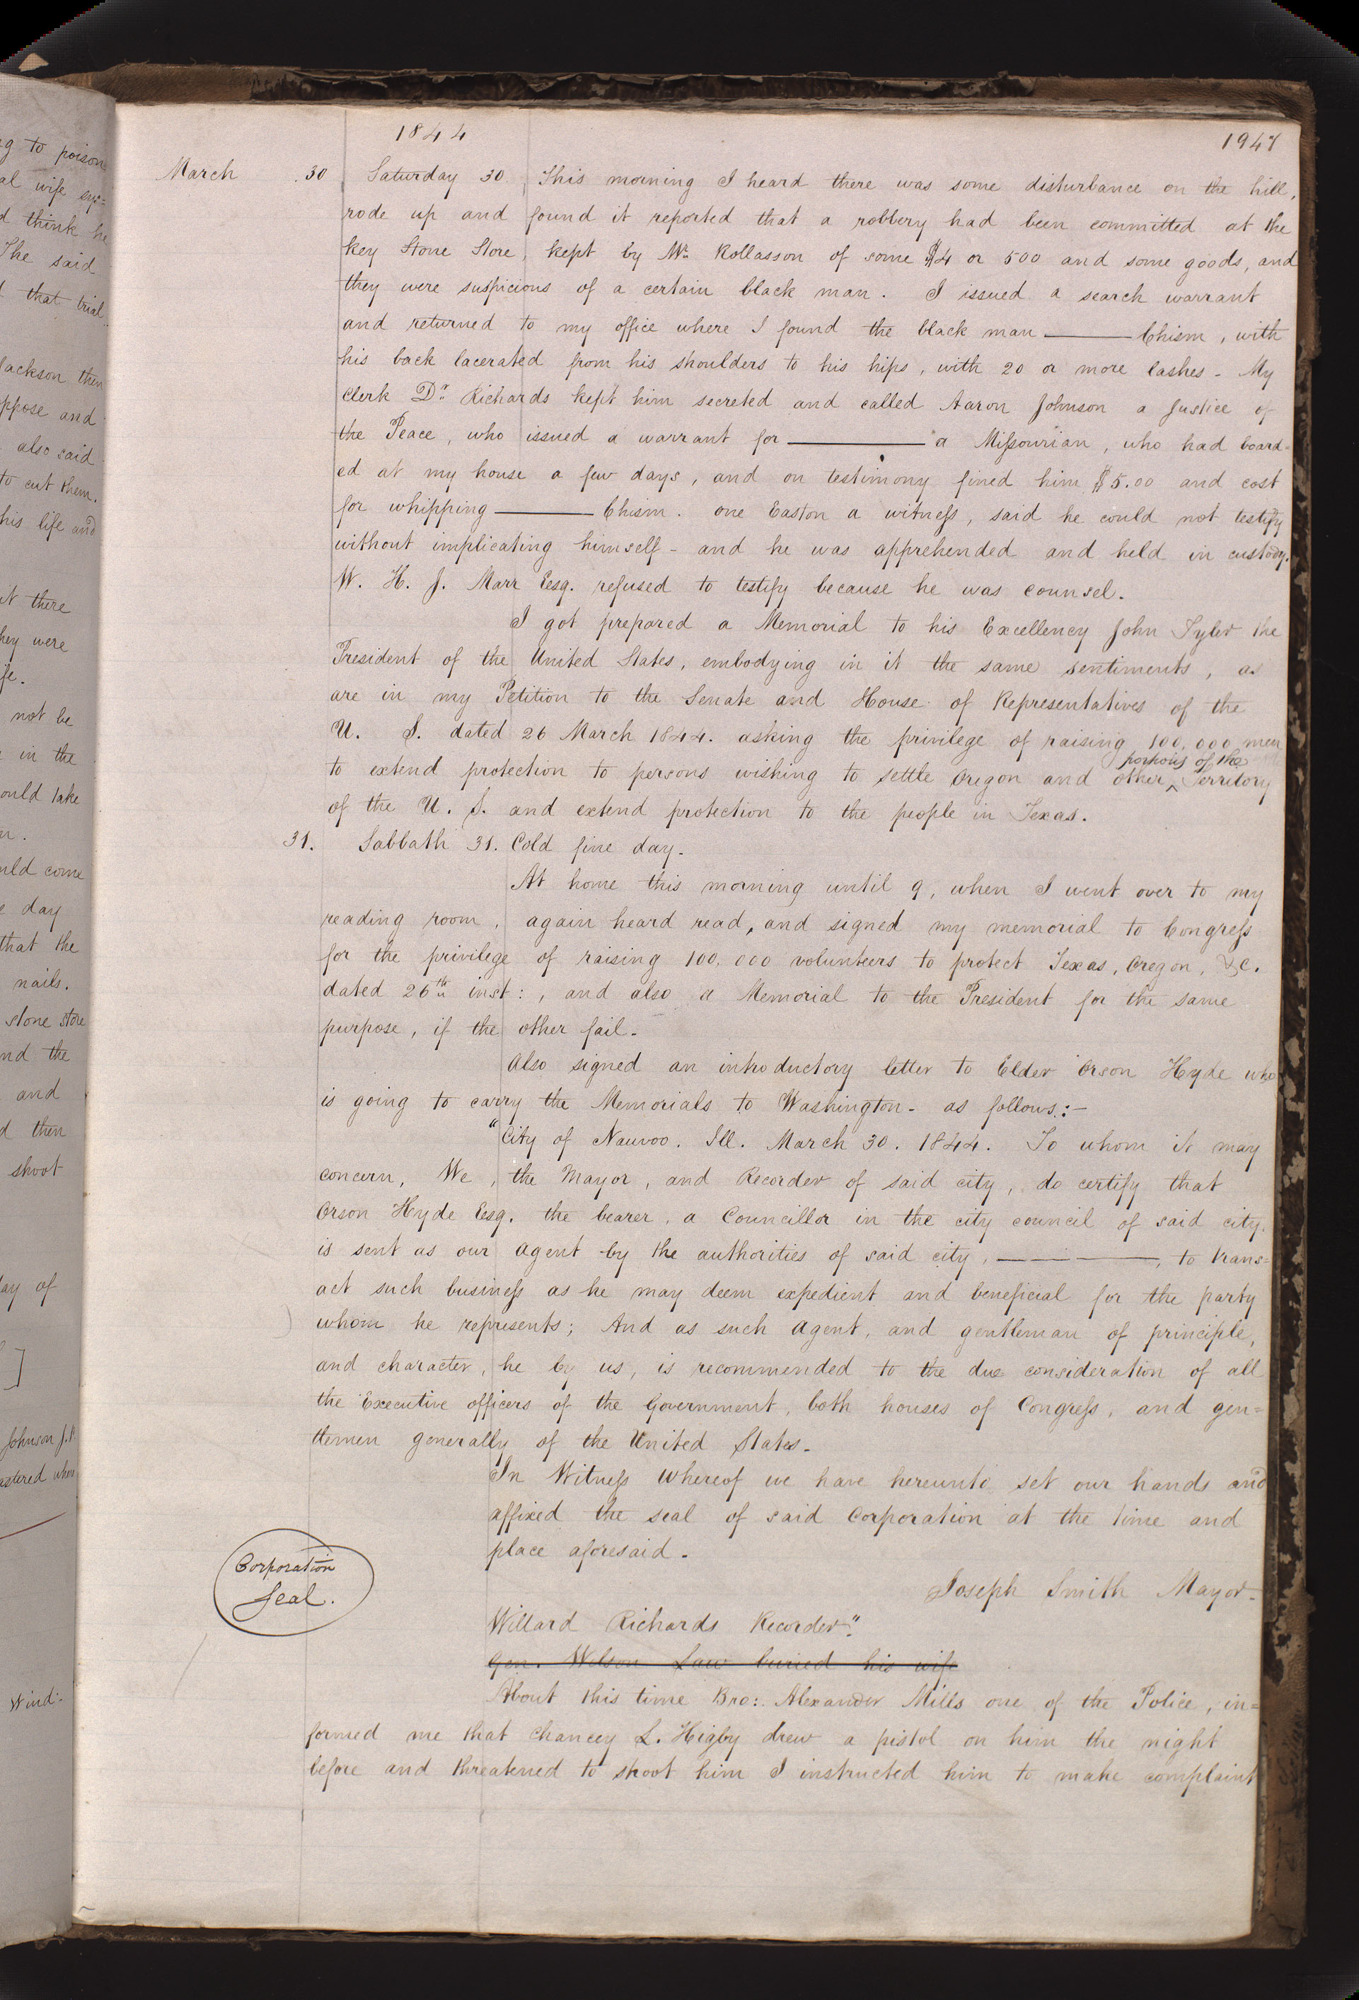 1844
1947
March 30 Saturday 30 This morning I heard there was some disturbance on the hill,
rode up and found it reported that a robbery had been committed at the
key Stone Store, kept by Mr. Rollasson of some $4 or 500 and some goods, and
they were suspicious of a certain black man. I issued a search warrant
and returned to my office where I found the black man ——— Chism, with
his back lacerated from his shoulders to his hips, with 20 or more lashes - My
Clerk Dr. Richards kept him secreted and called Aaron Johnson a Justice of
the Peace, who issued a warrant for ——— a Missourian, who had board-
ed at my house a few days, and on testimony fined him $5.00 and cost
for whipping ——— Chism. one Easton a witness, said he could not testify
without implicating himself - and he was apprehended and held in custody.
W. H. J. Marr Esq. refused to testify because he was counsel.
I got prepared a Memorial to his Excellency John Tyler the
President of the United States, embodying in it the same sentiments, as
are in my Petition to the Senate and House of Representatives of the
U. S. dated 26 March 1844. asking the privilege of raising 100,000 men
to extend protection to persons wishing to settle Oregon and other ^portions of the Territory
of the U. S. and extend protection to the people in Texas.
31. Sabbath 31. Cold fine day.
At home this morning until 9, when I went over to my
reading room, again heard read, and signed my memorial to Congress
for the privilege of raising 100,000 volunteers to protect Texas, Oregon, &c.
dated 26th inst:, and also a Memorial to the President for the same
purpose, if the other fail.
Also signed an introductory letter to Elder Orson Hyde who
is going to carry the Memorials to Washington - as follows:-
"City of Nauvoo. Ill. March 30. 1844. To whom it may
concern, We, the Mayor, and Recorder of said city, do certify that
Orson Hyde Esq. the bearer, a Councillor in the city council of said city,
is sent as our agent by the authorities of said city, ———, to trans=
act such business as he may deem expedient and beneficial for the party
whom he represents; And as such agent, and gentleman of principle,
and character, he by us, is recommended to the due consideration of all
the Executive officers of the Government, both houses of Congress, and gen=
tlemen generally of the United States.
In Witness whereof we have hereunto set our hands and
affixed the seal of said Corporation at the time and
place aforesaid.
Corporation
Seal.
Joseph Smith Mayor.
Willard Richards Recorder."
Gen. Wilson Law buried his wife
About this time Bro: Alexander Mills one of the Police, in=
formed me that Chancey L. Higby drew a pistol on him the night
before and threatened to shoot him I instructed him to make complaint